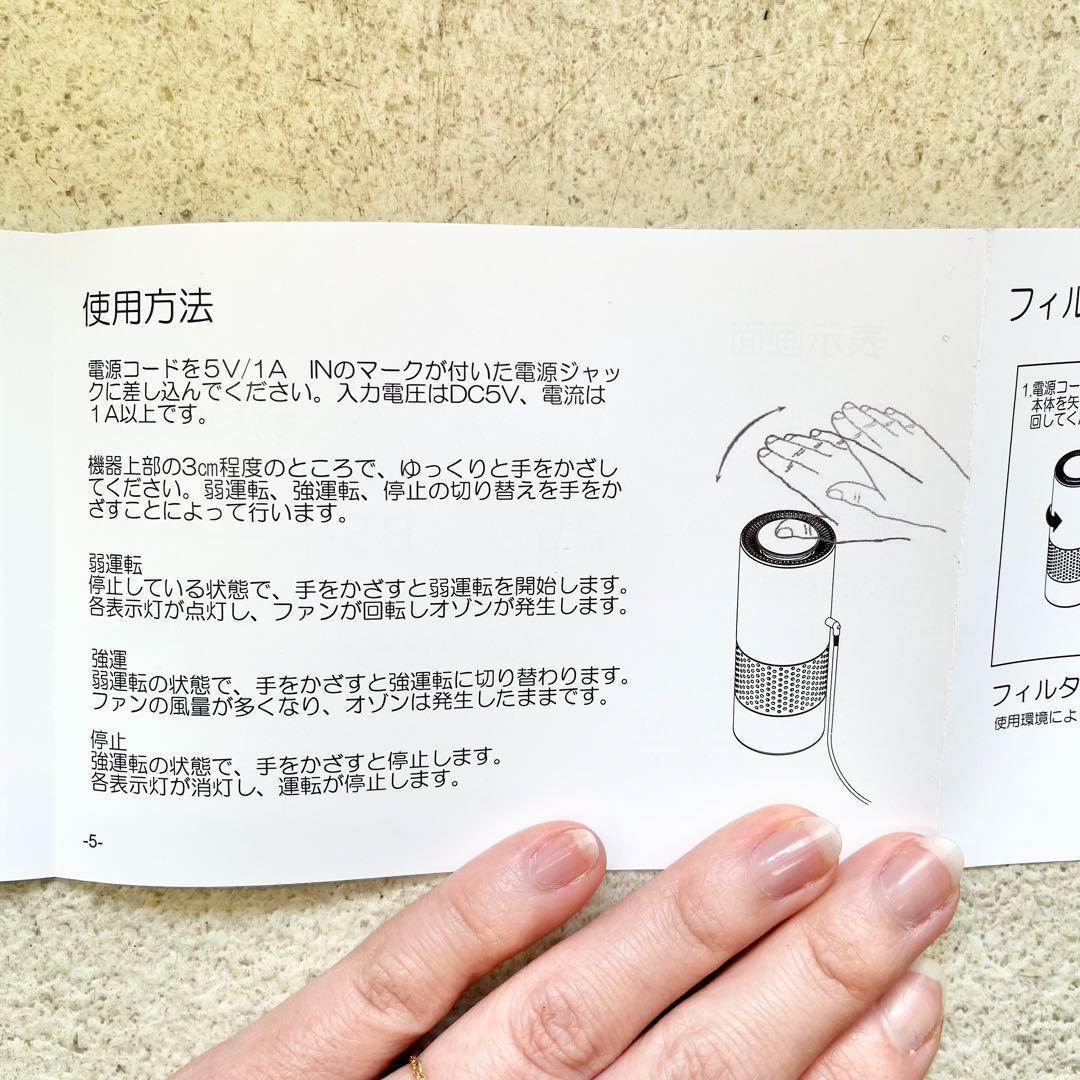 使用方法
電源コードを5V/1A INのマークが付いた電源ジャッ
クに差し込んでください。入力電圧はDC5V、電流は
1A以上です。
機器上部の3㎝程度のところで、ゆっくりと手をかざし
てください。弱運転、強運転、停止の切り替えを手をか
ざすことによって行います。
弱運転
停止している状態で、手をかざすと弱運転を開始します。
各表示灯が点灯し、ファンが回転しオゾンが発生します。
強運
弱運転の状態で、手をかざすと強運転に切り替わります。
ファンの風量が多くなり、オゾンは発生したままです。
停止
強運転の状態で、手をかざすと停止します。
各表示灯が消灯し、運転が停止します。
-5-
フィル
1.電源コー
本体を矢
回してく
フィルタ
使用環境によ